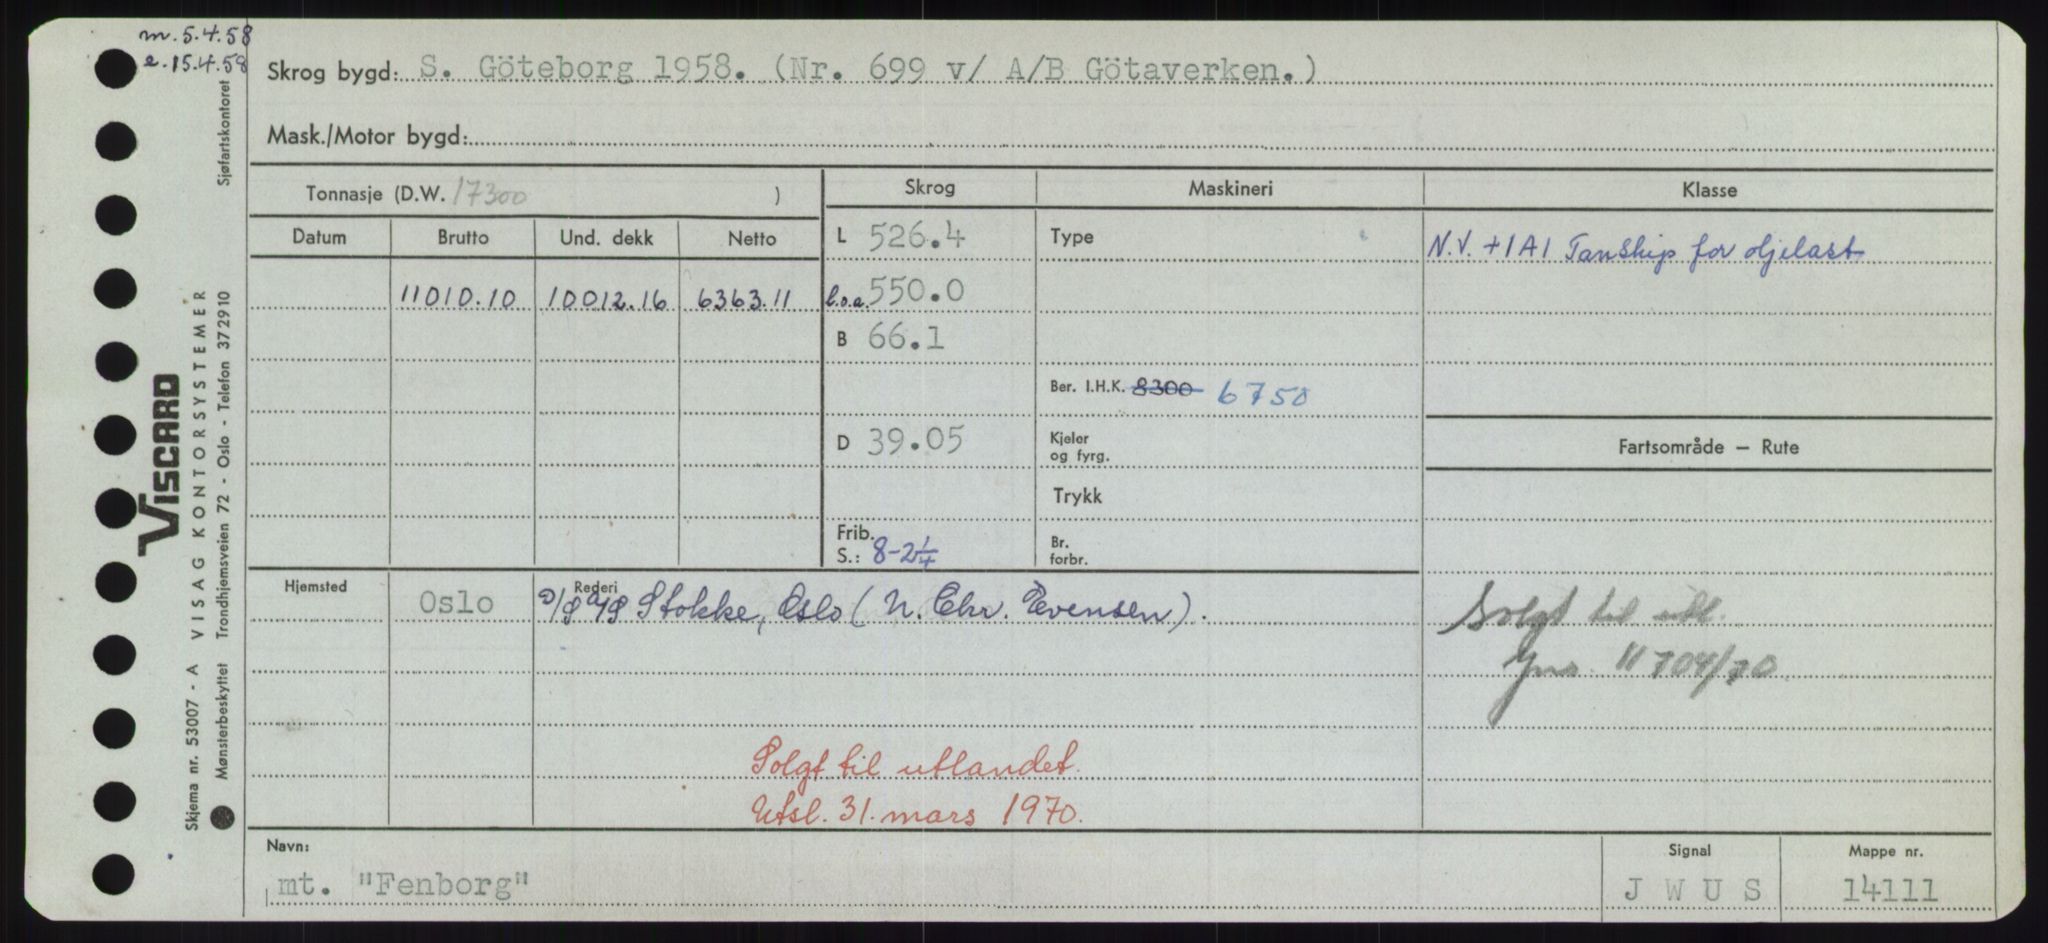 m. 5.4.58
e. 15.4.58
Skrog bygd: S. Göteborg 1958. (Nr. 699 v/ A/B Götaverken.)
Mask./Motor bygd:
Tonnasje (D.W. 17300 )
Skrog
Maskineri
Klasse
Datum
Brutto
Und. dekk
Netto
L 526.4
Type
N.V. +1A1 Tankskip for oljelast
11010.10
10012.16
6363.11
l.o.a. 550.0
B 66.1
Ber. I.H.K. 8300 6750
D 39.05
Kjeler
og fyrg.
Fartsområde – Rute
Trykk
Frib.
S.: 8-2¼
Br.
forbr.
Hjemsted
Oslo
Rederi
D/S A/S Stokke, Oslo (N. Chr. Evensen).
Solgt til utl.
Jnr. 11704/70
Solgt til utlandet.
Utsl. 31. mars 1970.
Navn:
mt. "Fenborg"
Signal
J W U S
Mappe nr.
14111
Skjema nr. 53007 - A VISAG KONTORSYSTEMER
VISCARD
Mønsterbeskyttet Trondhjemsveien 72 - Oslo - Telefon 372910
Sjøfartskontoret